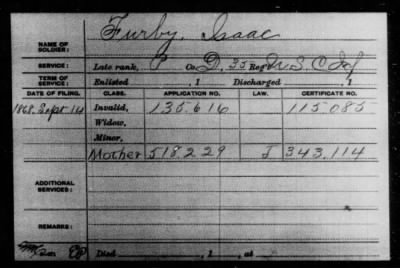 Furby, Isaac
NAME OF SOLDIER:
SERVICE: Late rank, P Co. D, 35 Reg U.S.C. Inf
TERM OF SERVICE: Enlisted , 1 Discharged , 1
DATE OF FILING. CLASS. APPLICATION NO. LAW. CERTIFICATE NO.
1868. Sept. 14 Invalid, 135.616 115.085
Widow,
Minor,
Mother 518.229 J 343.114
ADDITIONAL SERVICES:
REMARKS:
Died , 1 , at